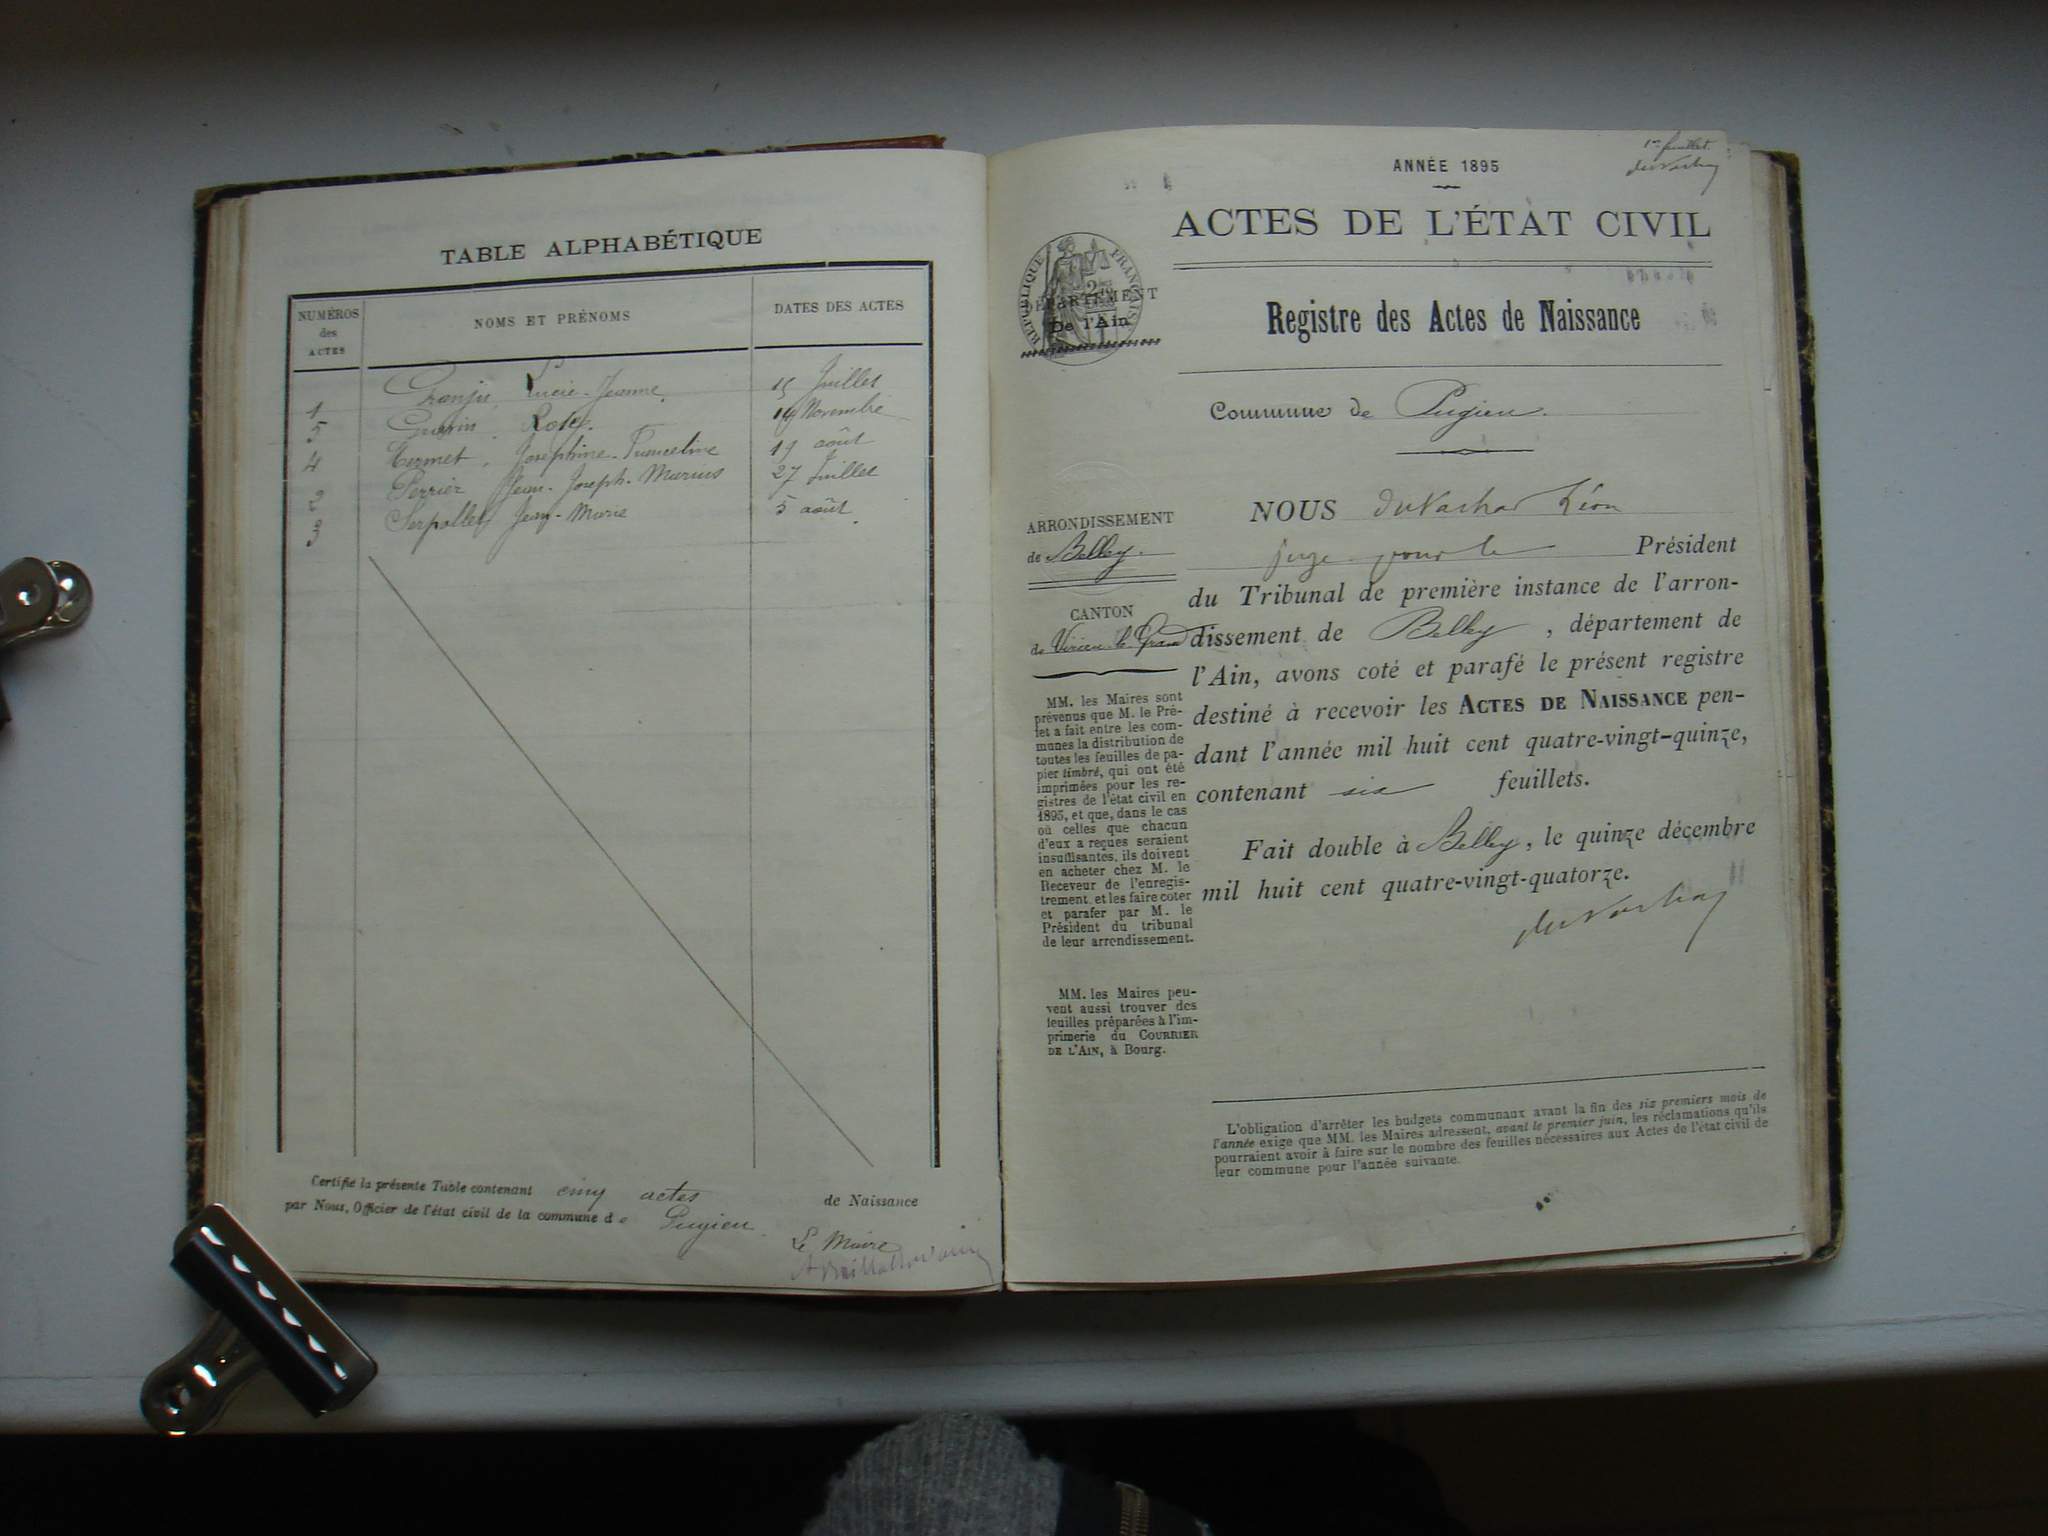 TABLE ALPHABÉTIQUE
NUMÉROS
des
ACTES
NOMS ET PRÉNOMS
DATES DES ACTES
1 Granju Lucie-Jeanne 15 Juillet
5 Guérin Rose 14 Novembre
4 Mermet Joséphine-Francéline 19 août
2 Perrier Jean-Joseph-Marius 27 Juillet
3 Serpollet Jean-Marie 5 août
Certifié la présente Table contenant cinq actes de Naissance
par Nous, Officier de l'état civil de la commune de Pugieu
Le Maire
1er feuillet
ANNÉE 1895
ACTES DE L'ÉTAT CIVIL
RÉPUBLIQUE FRANÇAISE
DÉPARTEMENT
De l'Ain
Registre des Actes de Naissance
Commune de Pugieu.
ARRONDISSEMENT
de Belley.
CANTON
de Virieu-le-Grand
MM. les Maires sont
prévenus que M. le Pré-
fet a fait entre les com-
munes la distribution de
toutes les feuilles de pa-
pier timbré, qui ont été
imprimées pour les re-
gistres de l'état civil en
1895, et que, dans le cas
où celles que chacun
d'eux a reçues seraient
insuffisantes, ils doivent
en acheter chez M. le
Receveur de l'enregis-
trement, et les faire coter
et parafer par M. le
Président du tribunal
de leur arrondissement.
MM. les Maires peu-
vent aussi trouver des
feuilles préparées à l'im-
primerie du COURRIER
DE L'AIN, à Bourg.
NOUS Léon
juge pour le Président
du Tribunal de première instance de l'arron-
dissement de Belley, département de
l'Ain, avons coté et parafé le présent registre
destiné à recevoir les ACTES DE NAISSANCE pen-
dant l'année mil huit cent quatre-vingt-quinze,
contenant six feuillets.
Fait double à Belley, le quinze décembre
mil huit cent quatre-vingt-quatorze.
L'obligation d'arrêter les budgets communaux avant la fin des six premiers mois de
l'année exige que MM. les Maires adressent, avant le premier juin, les réclamations qu'ils
pourraient avoir à faire sur le nombre des feuilles nécessaires aux Actes de l'état civil de
leur commune pour l'année suivante.